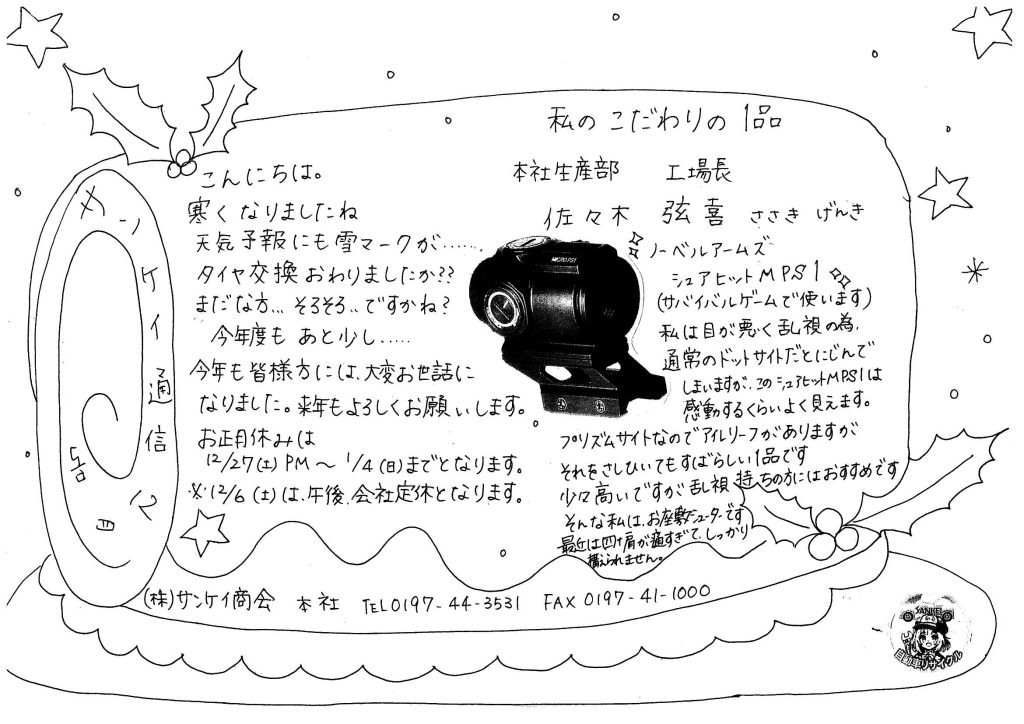 サンケイ通信
12月号
こんにちは。
寒くなりましたね
天気予報にも雪マークが……
タイヤ交換おわりましたか??
まだな方…そろそろ‥ですかね?
今年度も あと少し.....
今年も皆様方には、大変お世話に
なりました。来年もよろしくお願いします。
お正月休みは
12/27(土)PM～1/4(日)までとなります。
※12/6(土)は、午後、会社定休となります。
私のこだわりの1品
本社生産部 工場長
佐々木 弦喜 ささき げんき
ノーベルアームズ
シュアヒットMPS1
(サバイバルゲームで使います)
私は目が悪く乱視の為、
通常のドットサイトだとにじんで
しまいますが、このシュアヒットMPS1は
感動するくらいよく見えます。
プリズムサイトなのでアイリリーフがありますが
それをさしひいてもすばらしい1品です
少々高いですが乱視持ちの方にはおすすめです
そんな私は、お座敷シューターです
最近は四十肩が痛すぎて、しっかり
構えられません。
MICRO PRISM
(株)サンケイ商会 本社 TEL0197-44-3531 FAX 0197-41-1000
SANKEI
自動車リサイクル